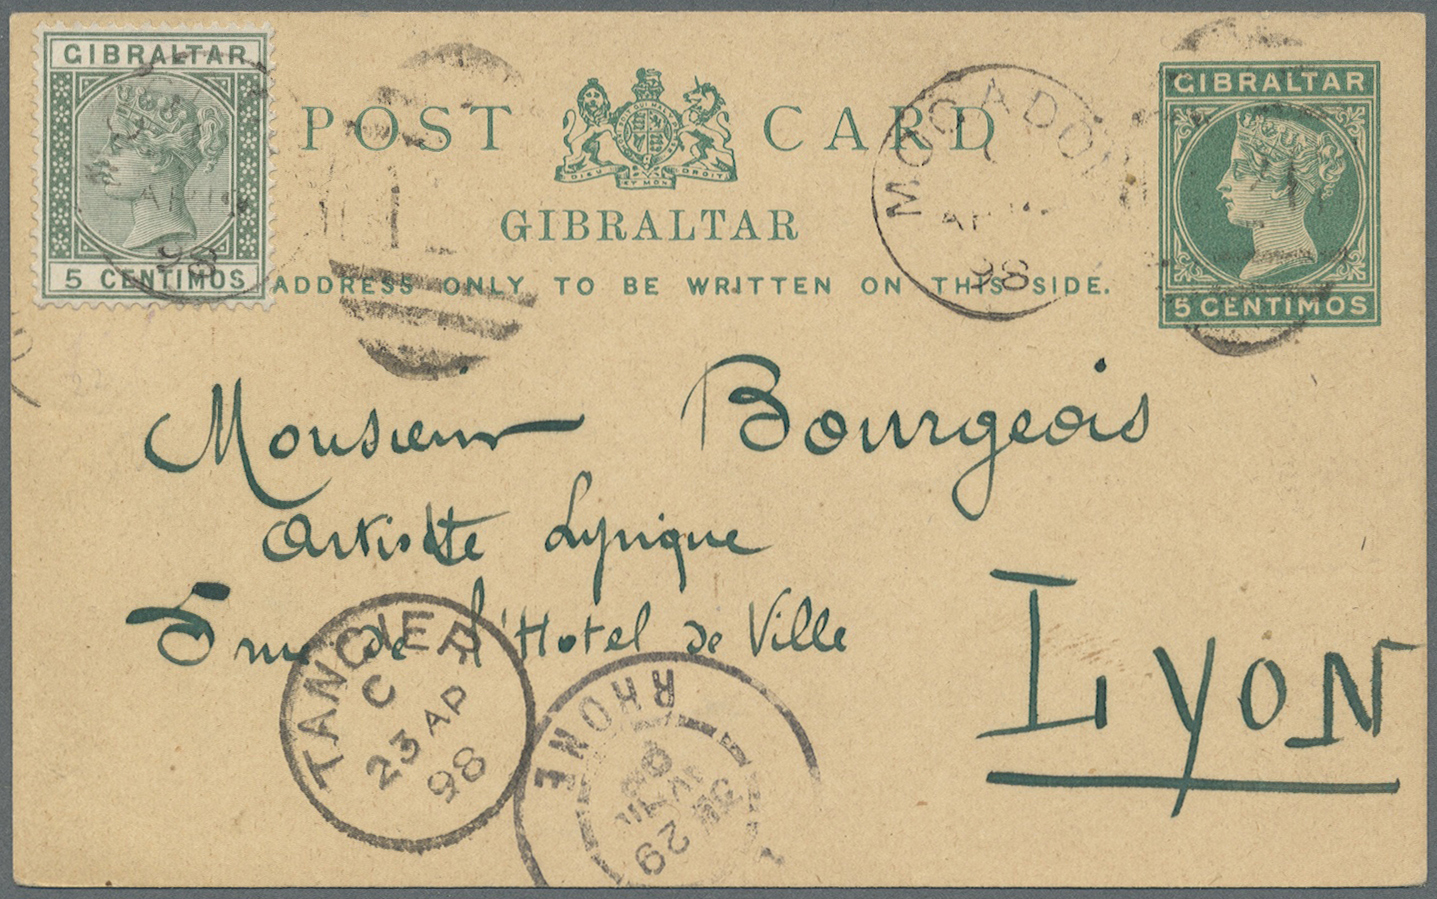 GIBRALTAR
5 CENTIMOS
POST CARD
DIEU ET MON DROIT
GIBRALTAR
ADDRESS ONLY TO BE WRITTEN ON THIS SIDE.
GIBRALTAR
5 CENTIMOS
MOGADOR
AP
98
98
Monsieur Bourgeois
Artiste Lyrique
5 rue de l'Hotel de Ville
Lyon
TANGIER
C
23 AP
98
RHONE
29